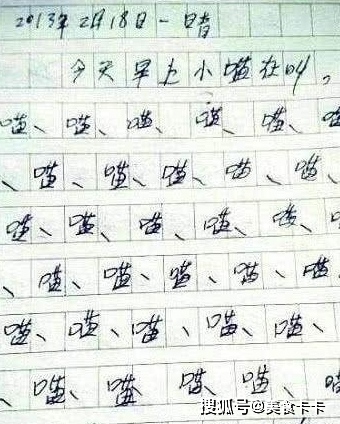 2013年2月18日 一 晴
今天早上小喵在叫。
喵、喵、喵、喵、喵、
、喵、喵、喵、喵、喵、
喵、喵、喵、喵、喵、
、喵、喵、喵、喵、喵
喵、喵、喵、喵、喵、
、喵、喵、喵、喵、
搜狐号@美食卡卡